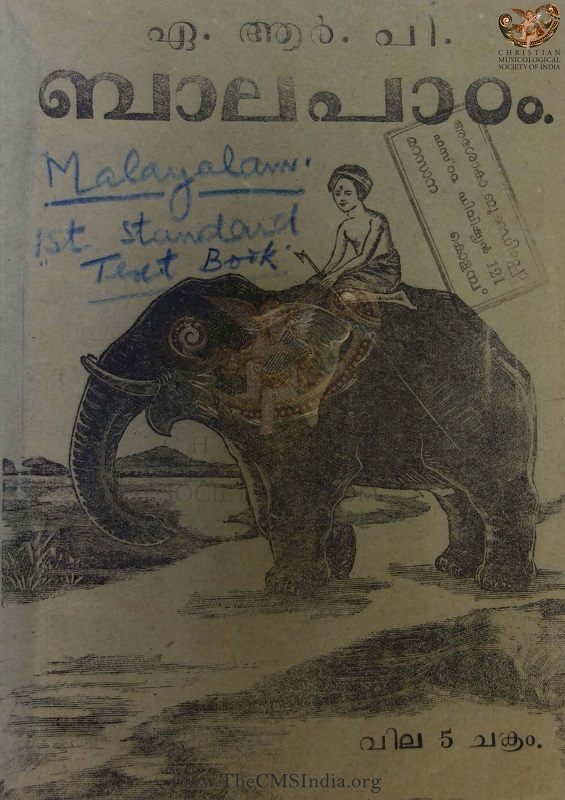 ഏ. ആർ. പി.
CHRISTIAN
MUSICOLOGICAL
SOCIETY OF INDIA
ബാലപാഠം.
Malayalam.
1st Standard
Text Book
121
വില 5 ചക്രം.
www.TheCMSIndia.org